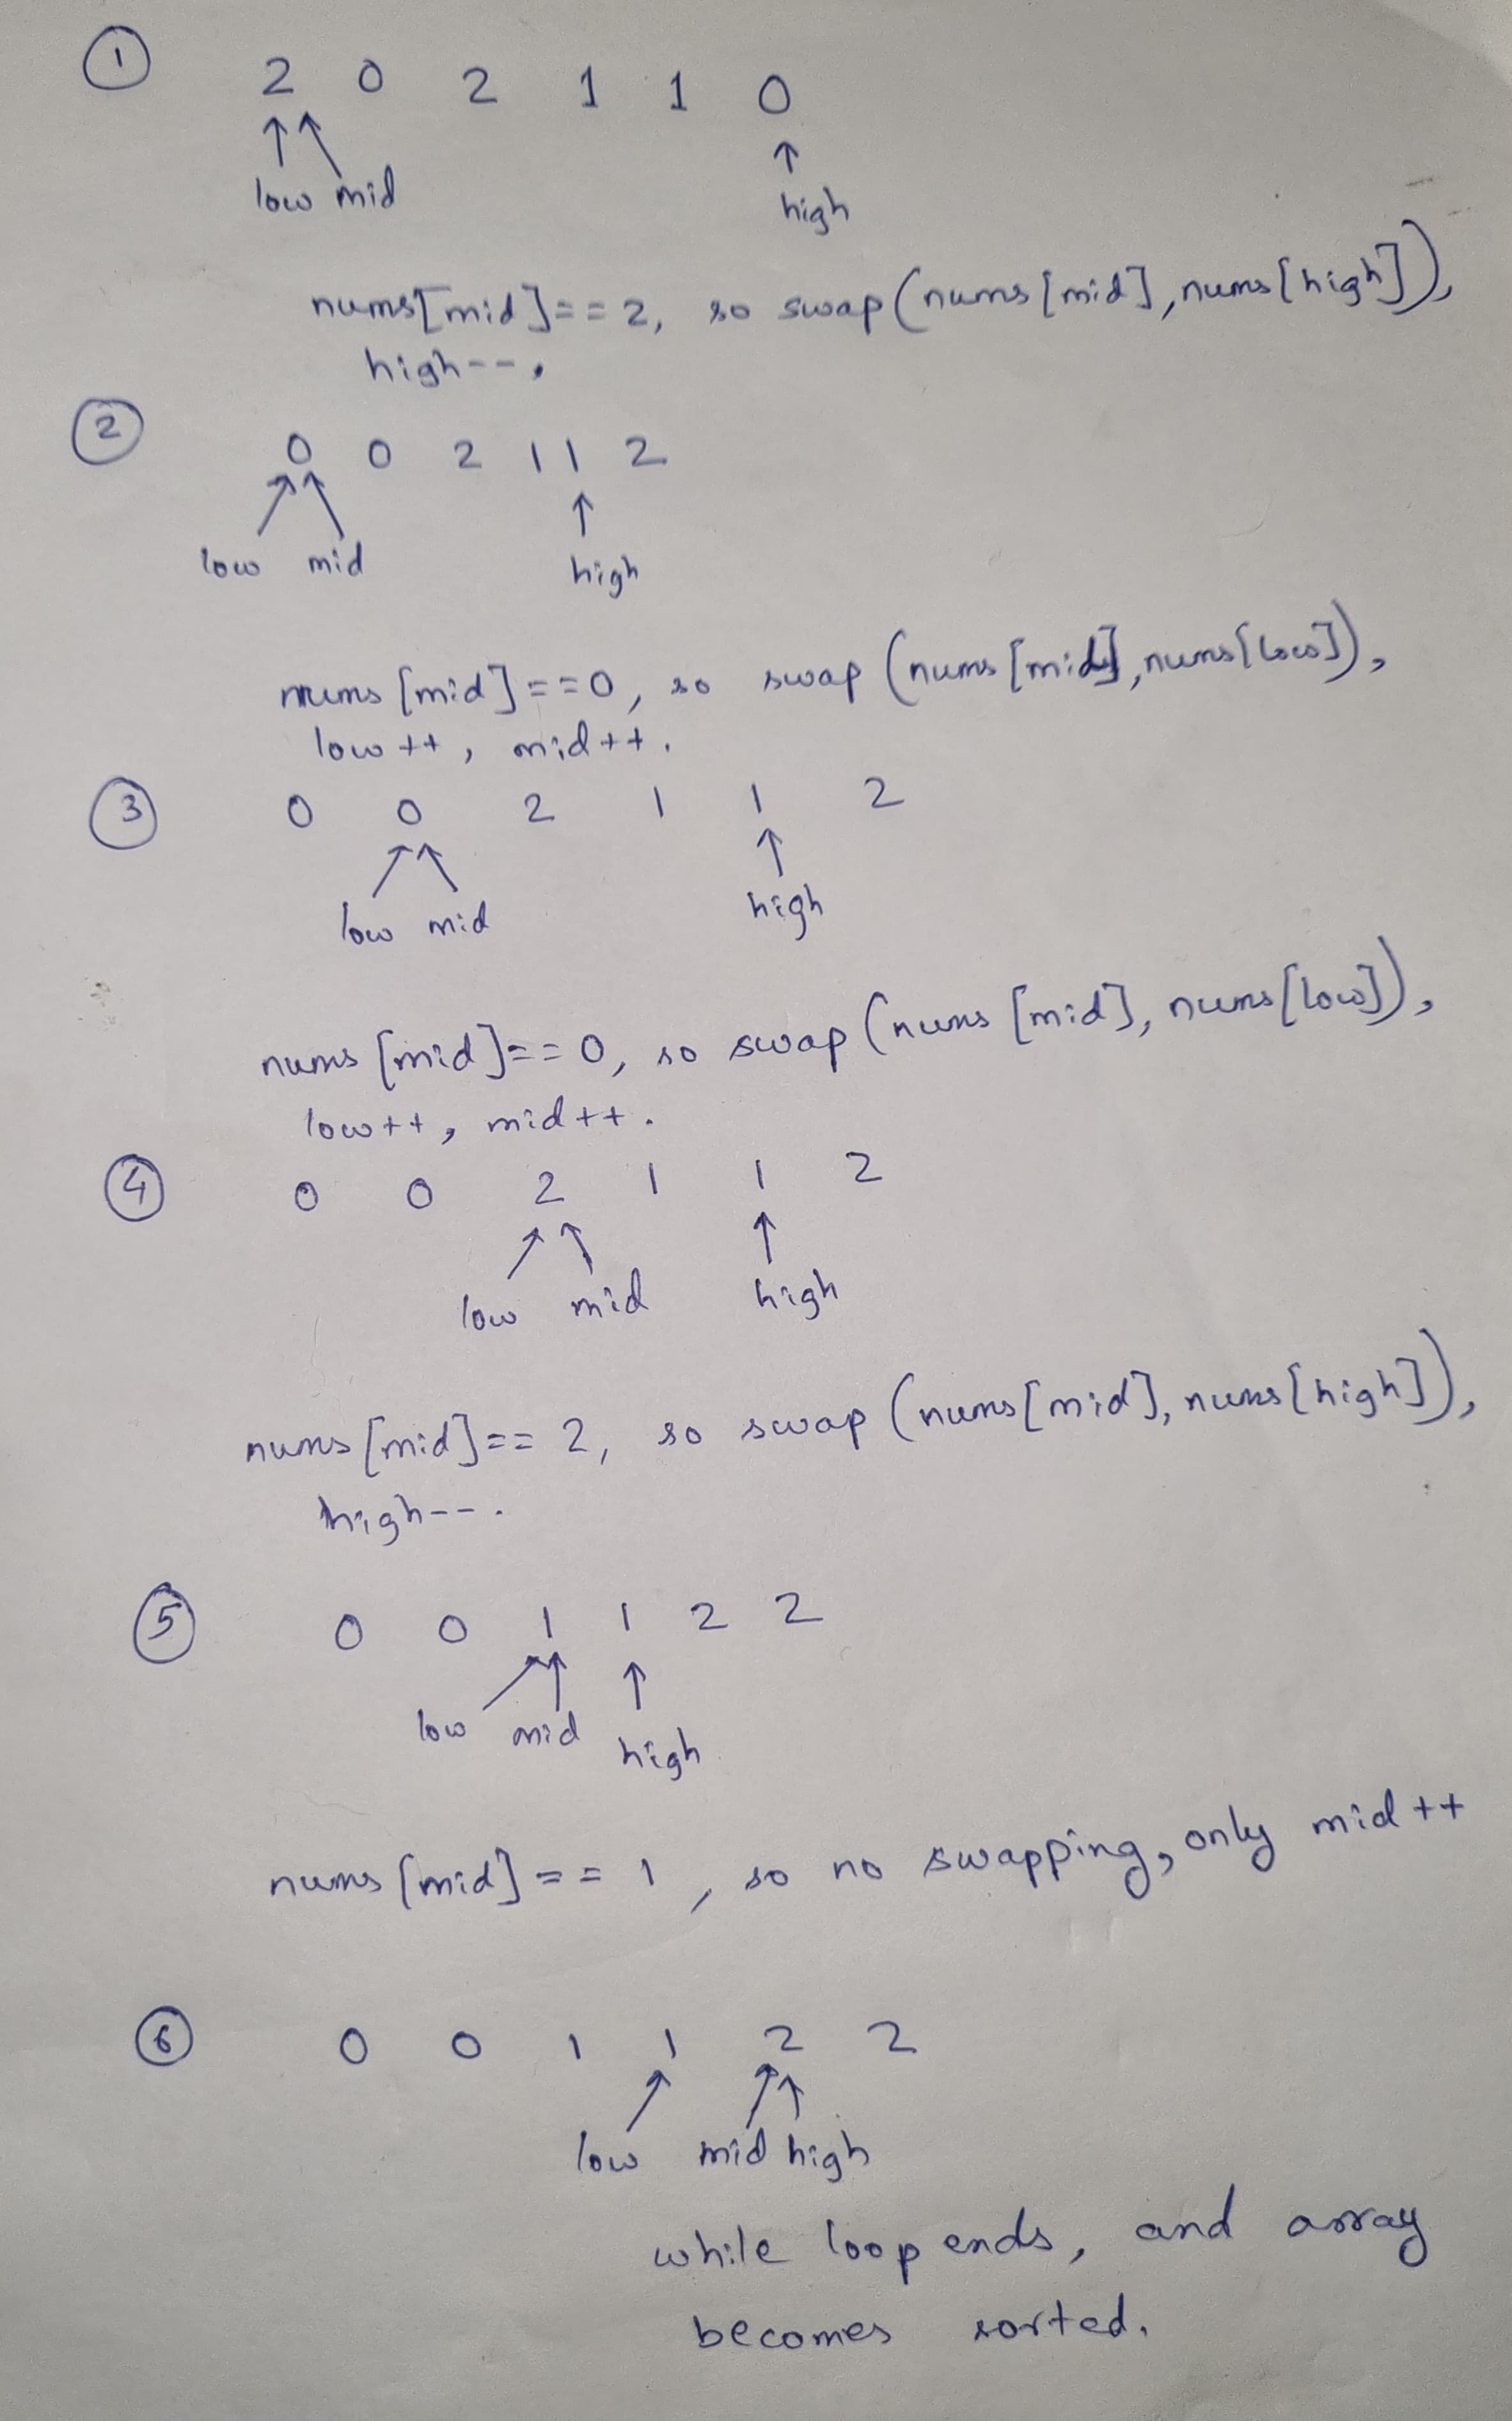 1
2 0 2 1 1 0
low mid high
nums[mid]==2, so swap(nums[mid],nums[high]),
high--.
2
0 0 2 1 1 2
low mid high
nums[mid]==0, so swap(nums[mid],nums[low]),
low++, mid++.
3
0 0 2 1 1 2
low mid high
nums[mid]==0, so swap(nums[mid], nums[low]),
low++, mid++.
4
0 0 2 1 1 2
low mid high
nums[mid]==2, so swap(nums[mid], nums[high]),
high--.
5
0 0 1 1 2 2
low mid high
nums[mid]==1, so no swapping, only mid++
6
0 0 1 1 2 2
low mid high
while loop ends, and array
becomes sorted.